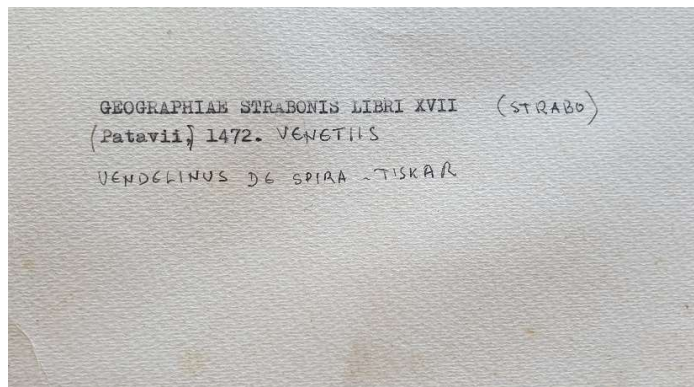 GEOGRAPHIAE STRABONIS LIBRI XVII (STRABO)
(Patavii,) 1472. VENETIIS
VENDELINUS DE SPIRA - TISKAR